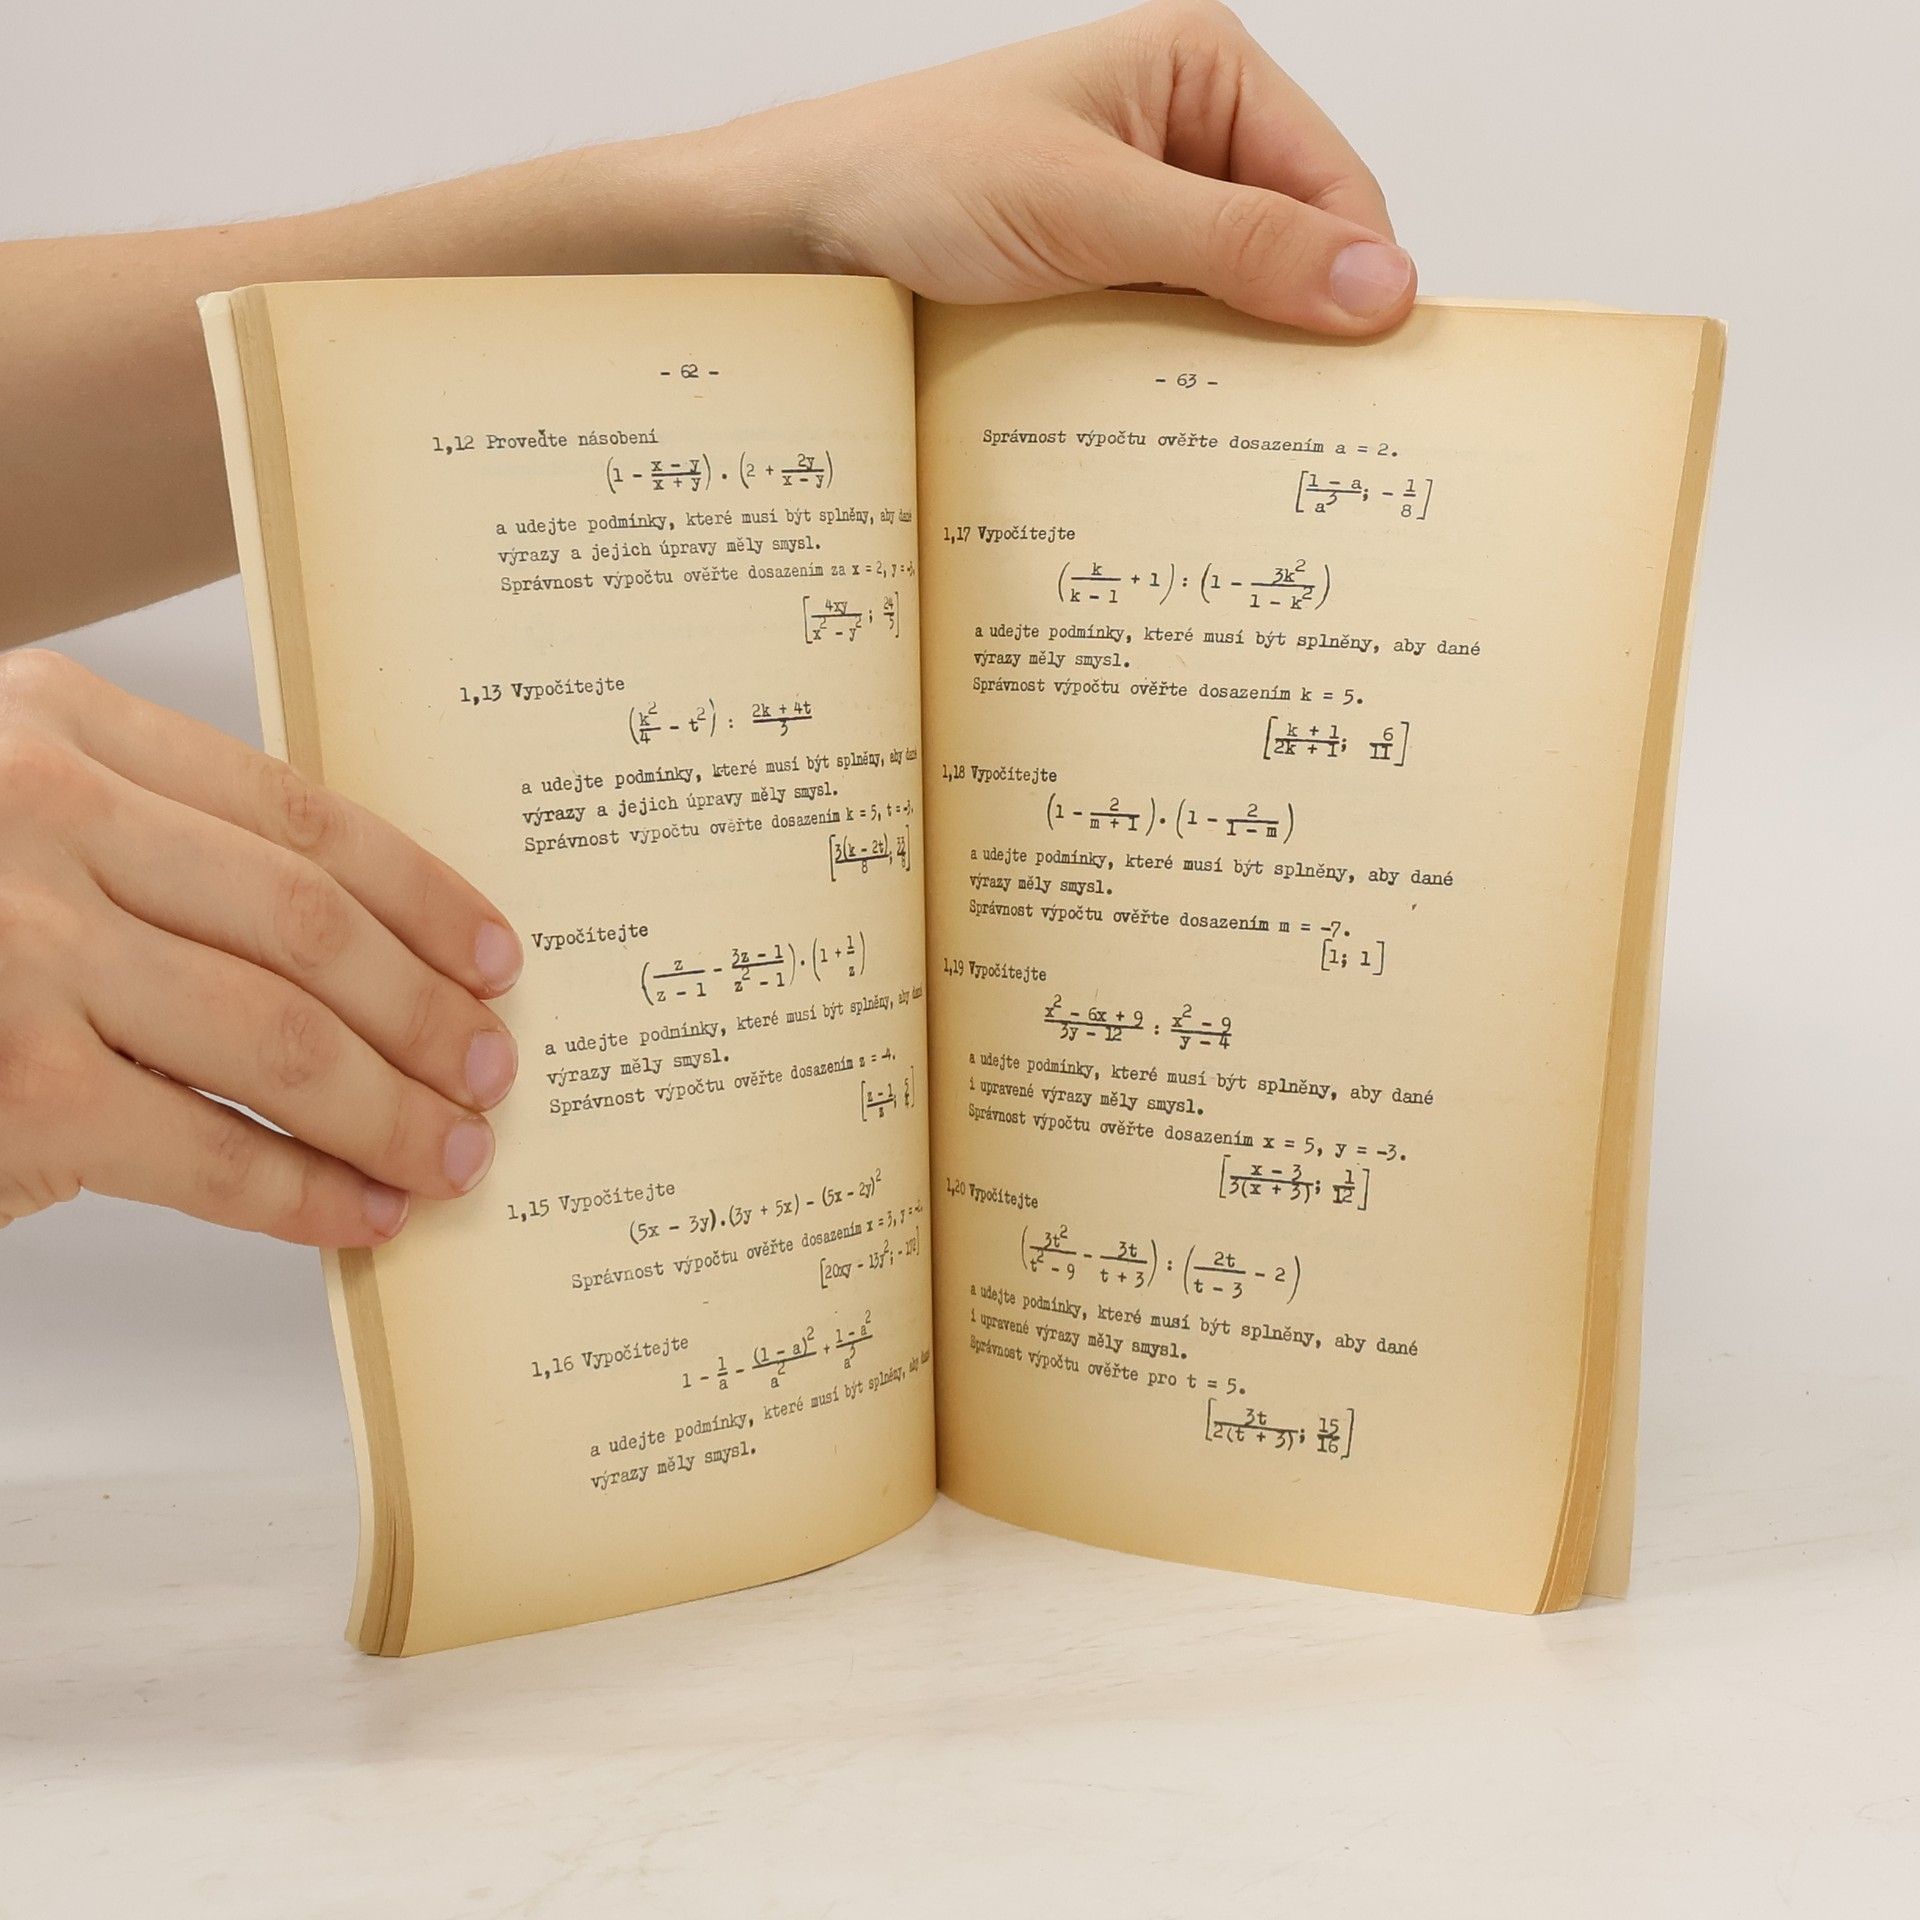 - 62 -
1,12 Proveďte násobení
(1 - (x - y)/(x + y)) . (2 + 2y/(x - y))
a udejte podmínky, které musí být splněny, aby dané
výrazy a jejich úpravy měly smysl.
Správnost výpočtu ověřte dosazením za x = 2, y = -3.
[4xy/(x² - y²); 24/5]
1,13 Vypočítejte
(k²/4 - t²) : (2k + 4t)/3
a udejte podmínky, které musí být splněny, aby dané
výrazy a jejich úpravy měly smysl.
Správnost výpočtu ověřte dosazením k = 5, t = -3.
[3(k - 2t)/8; 33/8]
Vypočítejte
(z/(z - 1) - (3z - 1)/(z² - 1)) . (1 + 1/z)
a udejte podmínky, které musí být splněny, aby dané
výrazy měly smysl.
Správnost výpočtu ověřte dosazením z = -4.
[(z - 1)/z; 5/4]
1,15 Vypočítejte
(5x - 3y).(3y + 5x) - (5x - 2y)²
Správnost výpočtu ověřte dosazením x = 3, y =
[20xy - 13y²;
1,16 Vypočítejte
1 - 1/a - (1 - a)²/a² + (1 - a²)/a³
a udejte podmínky, které musí být splněny, aby dané
výrazy měly smysl.
- 63 -
Správnost výpočtu ověřte dosazením a = 2.
[(1 - a)/a³; - 1/8]
1,17 Vypočítejte
(k/(k - 1) + 1) : (1 - 3k²/(1 - k²))
a udejte podmínky, které musí být splněny, aby dané
výrazy měly smysl.
Správnost výpočtu ověřte dosazením k = 5.
[(k + 1)/(2k + 1); 6/11]
1,18 Vypočítejte
(1 - 2/(m + 1)).(1 - 2/(1 - m))
a udejte podmínky, které musí být splněny, aby dané
výrazy měly smysl.
Správnost výpočtu ověřte dosazením m = -7.
[1; 1]
1,19 Vypočítejte
(x² - 6x + 9)/(3y - 12) : (x² - 9)/(y - 4)
a udejte podmínky, které musí být splněny, aby dané
i upravené výrazy měly smysl.
Správnost výpočtu ověřte dosazením x = 5, y = -3.
[(x - 3)/(3(x + 3)); 1/12]
1,20 Vypočítejte
(3t²/(t² - 9) - 3t/(t + 3)) : (2t/(t - 3) - 2)
a udejte podmínky, které musí být splněny, aby dané
i upravené výrazy měly smysl.
Správnost výpočtu ověřte pro t = 5.
[3t/(2(t + 3)); 15/16]